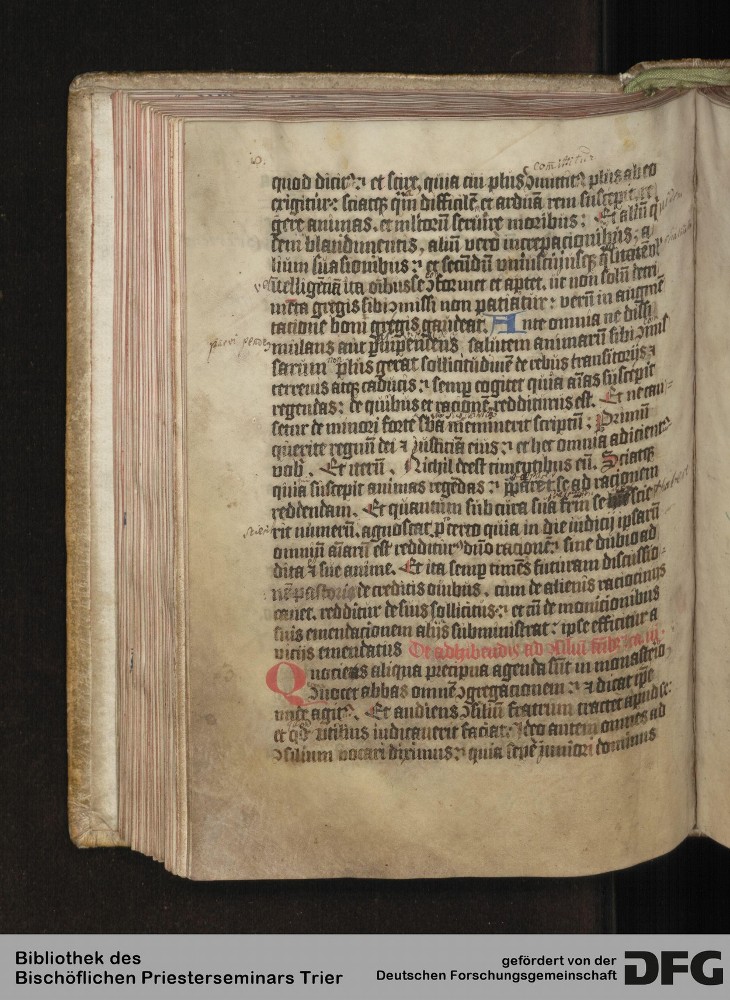 quod dicit᷑ et scire, quia cui plus ↄmittit᷑ plus ab eo
exigitur: sciatqꝫ qm̄ difficilē et arduā rem suscepit re
gere animas. et ml̄torū seruire moribus: Et aliū q
dem blandimentis, aliū vero increpacionibus: a
lium suasionibus: et secūdū vniuscuiusqꝫ qͣlitatē vl̓
intelligētiā ita oībus se ↄformet et aptet. ut non solū detri
meta gregis sibi ↄmissi non patiatur: verū in augmē
tatione boni gregis gaudeat. Ante omnia ne dissi
mulans aut puipendens salutem animarū sibi ↄmis
sarum plus gerat sollicitudinē de rebus transitorijs ⁊
terrenis atqꝫ caducis: semp cogitet quia aīas suscepit
regendas: de quibus et racionē redditurus est. Et ne cau=
setur de minori forte sb̄a meminerit scriptū: Primū
querite regnū dei ⁊ iusticiā eius: et hec omnia adicient᷑
vob̄. Et iterū. Nichil deest timentibus eū. Sciatqꝫ
quia suscepit animas regēdas: pparet se ad racionem
reddendam. Et quantum sub cura sua frm̄ se scie
rit numerū. agnoscat p certo quia in die iudicij ipsarū
omniū aīarū est redditur᷒ dn̄o racionē: sine dubio ad
dita ⁊ sue anime. Et ita semp timēs futuram discussio
nē pastoris de creditis ouibus. cum de alienis raciocinijs
cauet. redditur de suis sollicitus: et cū de monicionibus
suis emendacionem alijs subministrat: ipse efficitur a
vitijs emendatus De adhibendis ad ↄsiliū frīb᷒ ca. iij.
Quociens aliqua precipua agenda sūt in monasterio
ↄuocet abbas omnē ↄgregacionem: ⁊ dicat ipe
unde agit᷑. Et audiens ↄsiliū fratrum tractet apud se:
et qd̄ utilius iudicauerit faciat. Ideo autem omnes ad
ↄsilium vocari diximus: quia sepe iuniori dominus
Bibliothek des
Bischöflichen Priesterseminars Trier
gefördert von der
Deutschen Forschungsgemeinschaft
DFG